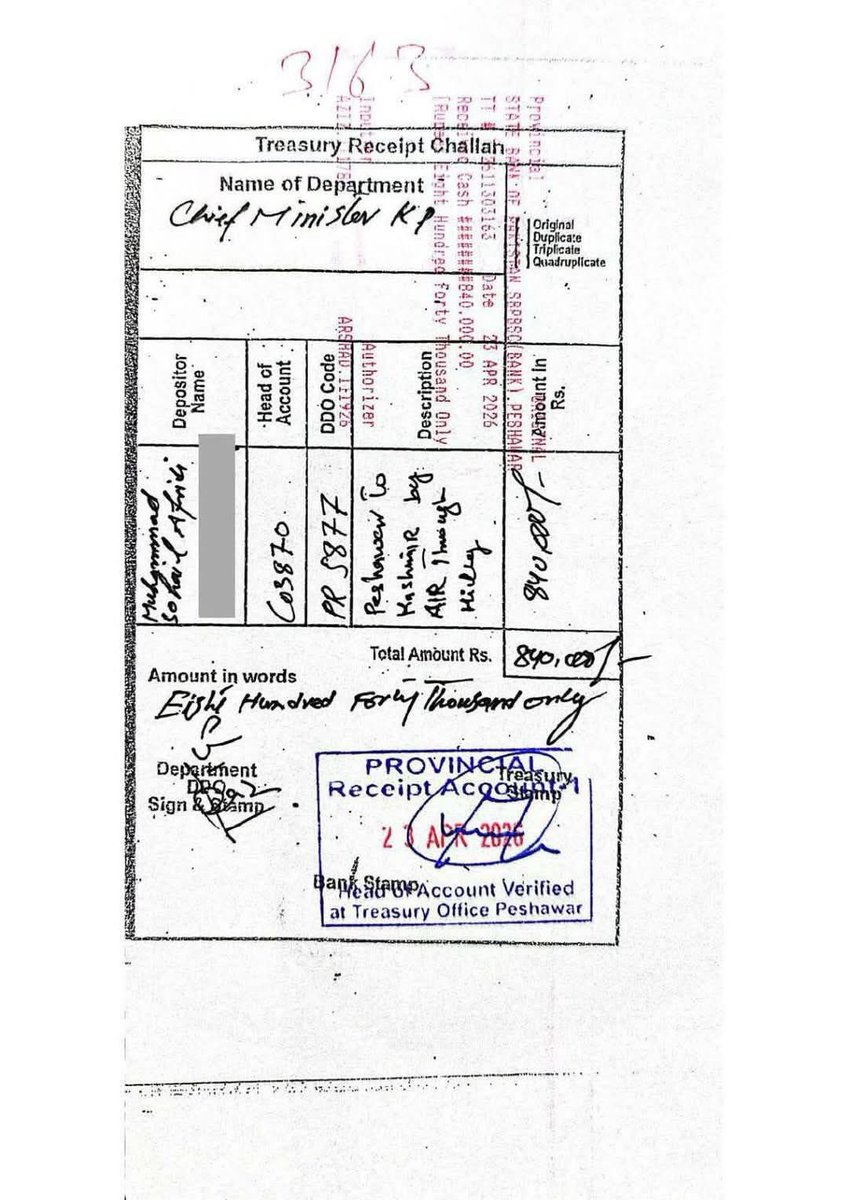 3163
Treasury Receipt Challah
Name of Department
Chief Minister KP
Original
Duplicate
Triplicate
Quadruplicate
Provincial
STATE BANK OF PAKISTAN SBPBSC BANK), PESHAWAR
Date 23 APR 2026
Cash #######840,000.00
Eight Hundred Forty Thousand Only
Authorizer
ARSHAD.
Depositor
Name
Head of
Account
DDO Code
Description
Amount In
Rs.
Muhammad
Sohail Afridi
C03870
PR 5877
Peshawar to
Kashmir by
AIR Through
840,000/-
Total Amount Rs.
840,000/-
Amount in words
Eight Hundred Forty Thousand only
Department
DDO
Sign & Stamp
PROVINCIAL
Receipt Account-1
Treasury
Stamp
23 APR 2026
Bank Stamp
Head of Account Verified
at Treasury Office Peshawar